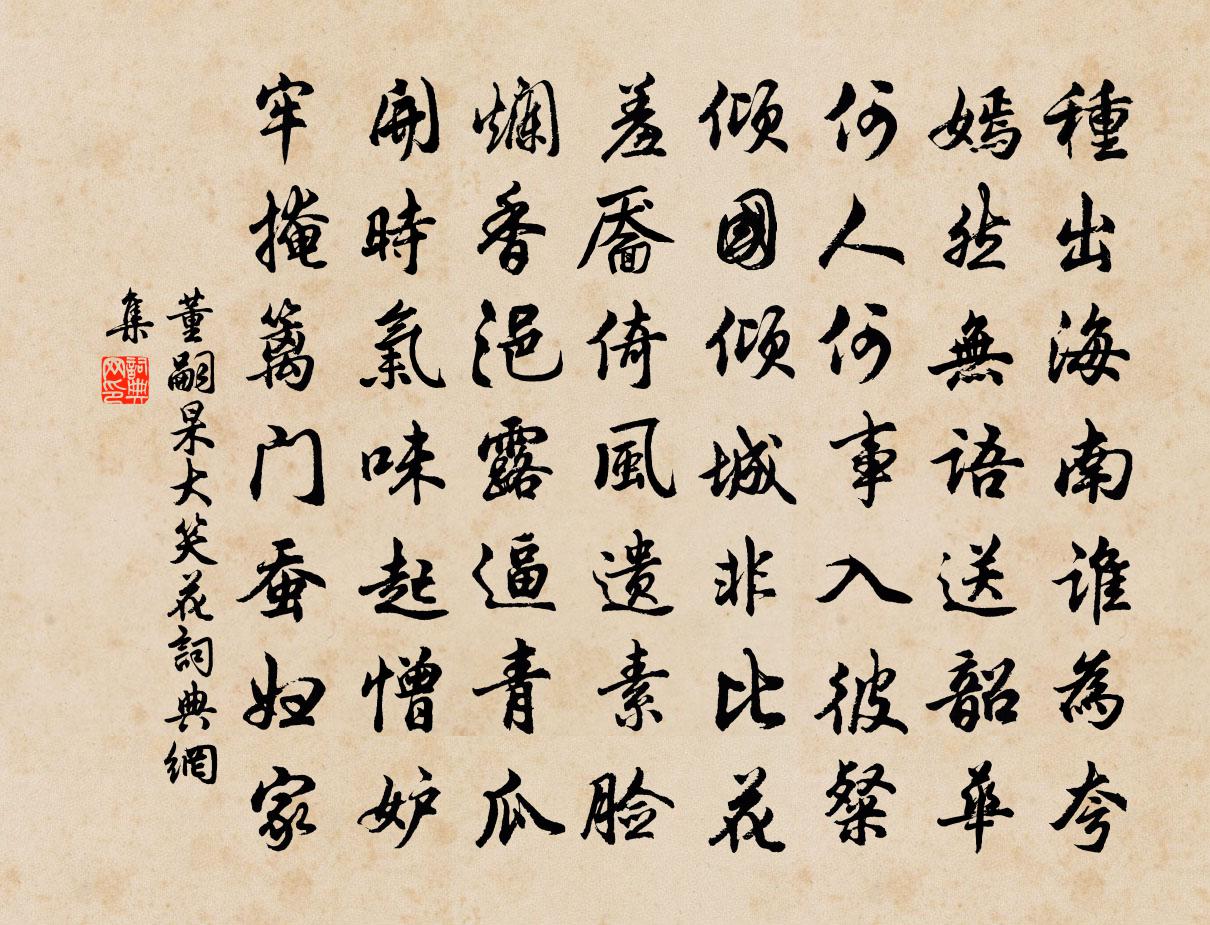 種出海南誰為夸
嫣然無語送韶華
何人何事入彼粲
傾國傾城非比花
羞靨倚風遺素臉
爛香浥露逼青瓜
開時氣味起憎妒
牢掩篱門蚕妇家
董嗣杲大笑花詞典網
集
詞典网印